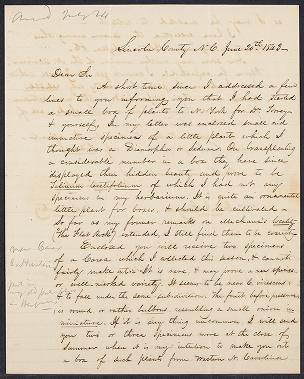 Lincoln County N.C. June 20th 1843
Dear Sir
A short time since I addressed a few
lines to you informing you that I had sent
a small box of plants to N. York for Dr Torrey
& yourself. In my letter was enclosed small and
immature specimens of a little plant which I
thought was a Diamorpha or Sedum. On transplanting
a considerable number in a box they have since
displayed their hidden beauty and prove to be
Talinum teretifolium of which I had not any
specimens in my herbarium. It is quite an ornamental
little plant for boxes, & should be cultivated.
So far as my former remarks on
"the Flat Rock" extended, I still find them to be correct.
Enclosed you will receive two specimens
of a Carex which I collected this season, & cannot
fairly make out. It is rare & may prove a new species
or well-marked variety. It seems to be near C.
& to fall under the same subdivision. The fruit before
is round or rather bulbous resembling a small onion in
miniature. If it is any thing uncommon I will send
you two or three specimens more at the close of
Summer when it is my intention to make you out
a box of such plants from Western N. Carolina